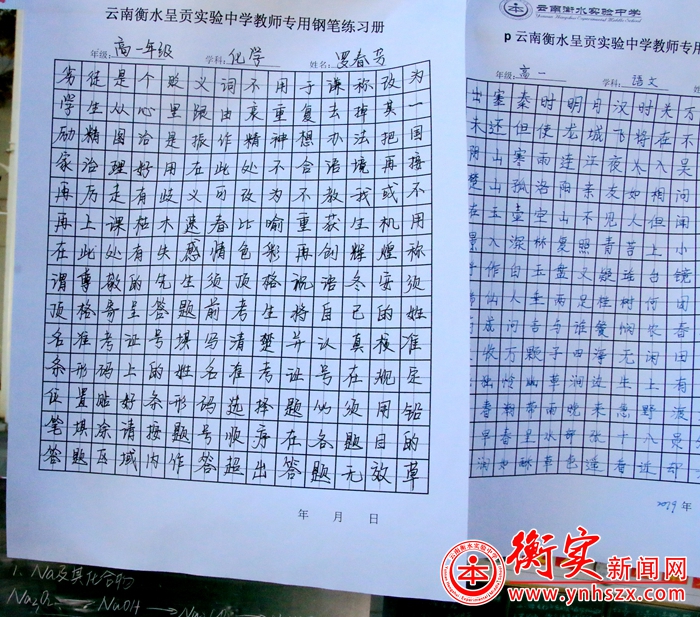 云南衡水呈贡实验中学教师专用钢笔练习册
年级: 高一年级 学科: 化学 姓名:
劣徒是个歧义词不用于谦称改为
学生从心里跟由衷重复去掉其一
励精图治是振作精神想办法把国
家治理好用在此处不合语境再接
再厉走有歧义可改为不教我或不
再上课枯木逢春比喻重获生机用
在此处有失感情色彩再创辉煌称
谓尊敬的先生须顶格祝语冬安须
顶格寄呈答题前考生将自己的姓
名准考证号填写清楚并认真核准
条形码上的姓名准考证号在规定
位置贴好条形码选择题必须用铅
笔填涂请按题号顺序在各题目的
答题区域内作答超出答题无效草
年 月 日
云南衡水实验中学
p 云南衡水呈贡实验中学教师专用
年级: 高一 学科: 语文
出塞秦时明月汉时关万
未还但使龙城飞将在不
阴山寒雨连江夜入吴
楚山孤洛阳亲友如相问
在玉壶空山不见人但闻
景入深林复照青苔上小
作白玉盘又疑瑶台镜
仙人垂两足桂树何团
成问言与谁餐悯农春
收万颗子四海无闲田
独怜幽草涧边生上有
春潮带雨晚来急野渡
早春呈水部张十八员
润如酥草色遥看近却
2019年
1. Na及其化合物
Na₂O₂ → NaOH →
衡实新闻网
www.ynhszx.com